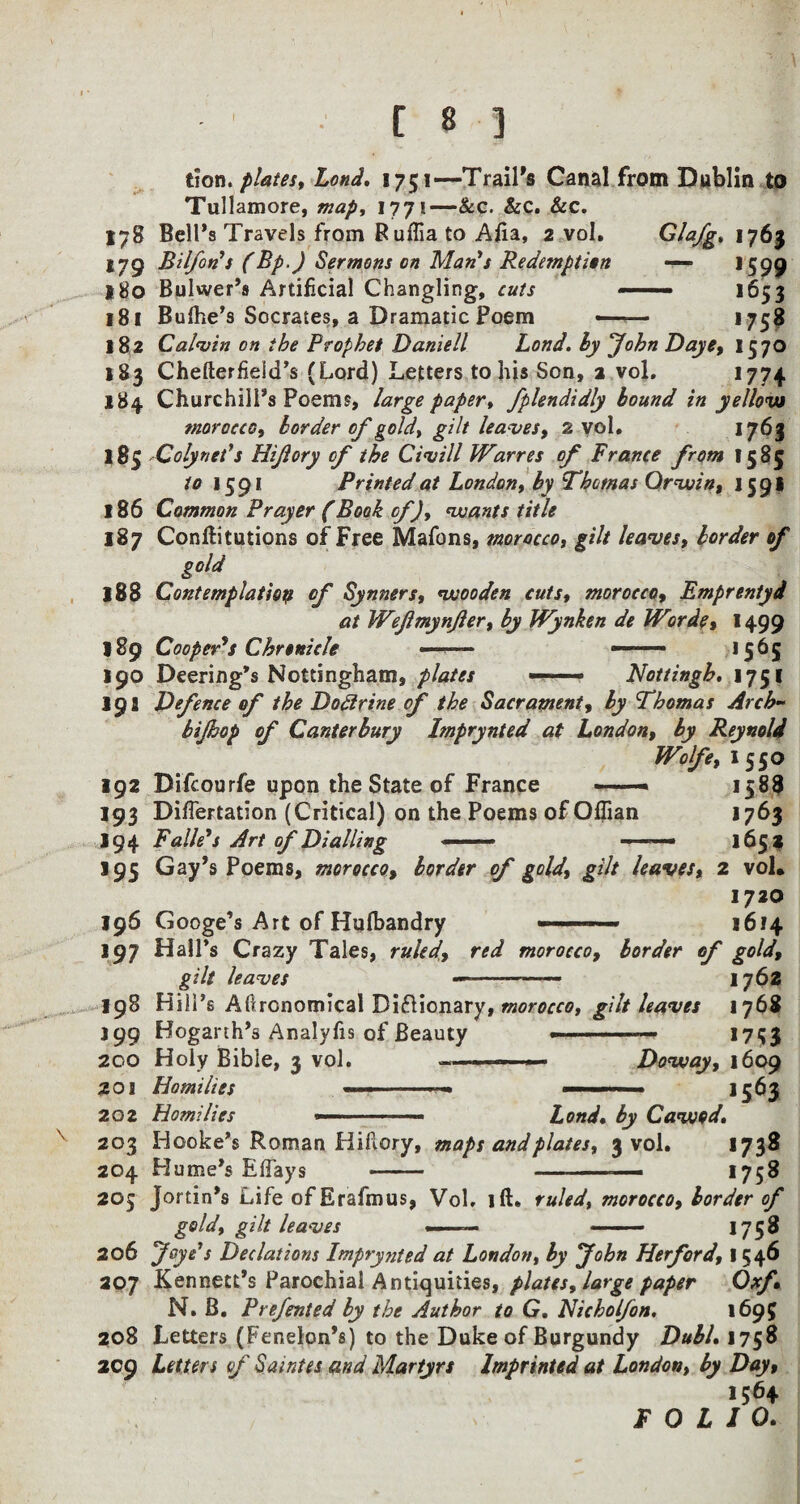 [ 8 ]
tion. plates, Lond. 1751—Trail's Canal from Dublin to
Tullamore, map, 1771—&c. &c. &c.
178 Bell's Travels from Ruſſia to Aſia, 2 vol. Glaſg. 1763
179 Bilſon's (Bp.) Sermons on Man's Redemption — 1599
180 Bulwer's Artificial Changling, cuts —— 1653
181 Buſhe's Socrates, a Dramatic Poem —— 1758
182 Calvin on the Prophet Daniell Lond. by John Daye, 1570
183 Cheſterfield's (Lord) Letters to his Son, 2 vol. 1774
184 Churchill's Poems, large paper, ſplendidly bound in yellow
morocco, border of gold, gilt leaves, 2 vol. 1763
185 Colynet's Hiſtory of the Civill Warres of France from 1585
to 1591 Printed at London, by Thomas Orwin, 1591
186 Common Prayer (Book of), wants title
187 Conſtitutions of Free Maſons, morocco, gilt leaves, border of
gold
188 Contemplation of Synners, wooden cuts, morocco, Emprentyd
at Weſtmynſter, by Wynken de Worde, 1499
189 Cooper's Chronicle —— —— 1565
190 Deering's Nottingham, plates —— Nottingh. 1751
191 Defence of the Doctrine of the Sacrament, by Thomas Arch-
biſhop of Canterbury Imprynted at London, by Reynold
Wolfe, 1550
192 Diſcourſe upon the State of France —— 1588
193 Diſſertation (Critical) on the Poems of Oſſian 1763
194 Falle's Art of Dialling —— —— 1652
195 Gay's Poems, morocco, border of gold, gilt leaves, 2 vol.
1720
196 Googe's Art of Huſbandry ——— 1614
197 Hall's Crazy Tales, ruled, red morocco, border of gold,
gilt leaves ——— 1762
198 Hill's Aſtronomical Dictionary, morocco, gilt leaves 1768
199 Hogarth's Analyſis of Beauty ——— 1753
200 Holy Bible, 3 vol. ——— Doway, 1609
201 Homilies ——— ——— 1563
202 Homilies ——— Lond. by Cawod.
203 Hooke's Roman Hiſtory, maps and plates, 3 vol. 1738
204 Hume's Eſſays —— ——— 1758
205 Jortin's Life of Eraſmus, Vol. 1ſt. ruled, morocco, border of
gold, gilt leaves —— —— 1758
206 Joye's Declations Imprynted at London, by John Herford, 1546
207 Kennett's Parochial Antiquities, plates, large paper Oxf.
N. B. Preſented by the Author to G. Nicholſon. 1695
208 Letters (Fenelon's) to the Duke of Burgundy Dubl. 1758
209 Letters of Saintes and Martyrs Imprinted at London, by Day,
1564
FOLIO.